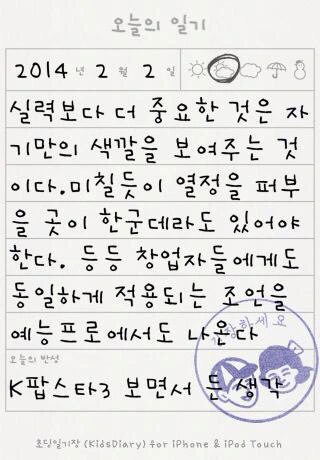 오늘의 일기
2014 년 2 월 2 일
실력보다 더 중요한 것은 자
기만의 색깔을 보여주는 것
이다.미칠듯이 열정을 퍼부
을 곳이 한군데라도 있어야
한다. 등등 창업자들에게도
동일하게 적용되는 조언을
예능프로에서도 나온다
오늘의 반성
K팝스타3 보면서 든 생각
초딩일기장 (KidsDiary) for iPhone & iPod Touch